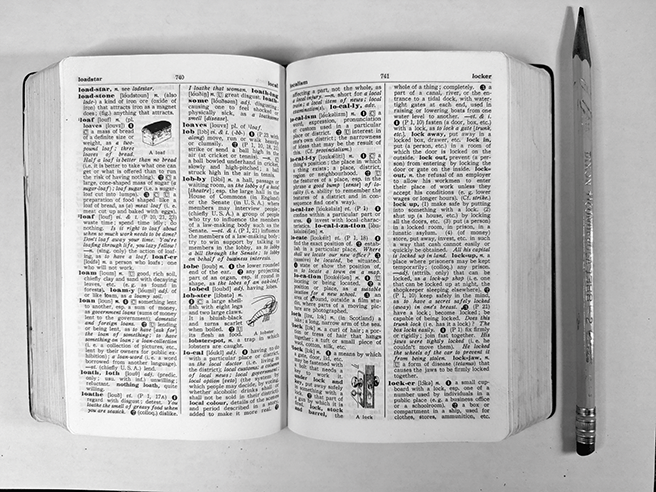 loadstar 740 local
load-star, n. see lodestar.
load-stone [loudstoun] n. (also
lode-) a kind of iron ore (oxide of
iron) that attracts iron as a magnet
does; (fig.) anything that attracts.
loaf [louf] n.
loaves [louvz]
a mass of bread
of a definite size or
weight, as a two-
pound loaf; three
loaves of bread.
A loaf
Half a loaf is better than no bread
(i.e. it is better to take what one can
get or what is offered than to run
the risk of having nothing).
large, cone-shaped mass of sugar (a
sugar-loaf); loaf sugar (i.e. a sugar-
loaf cut into lumps).
preparation of food shaped like a
loaf of bread, as (a) meat loaf (i.e.
meat cut up and baked with eggs).
loaf [louf] vt. & i. (P 10, 21, 23)
waste time; spend time idly; do
nothing. Is it right to loaf about
when so much work needs to be done?
Don't loaf away your time. You're
loafing through life, you lazy fellow!
—n. (sing. only) the action of loaf-
ing, as to have a loaf. loaf-er
[loufə] n. a person who loafs; one
who will not work.
loam [loum] n. good, rich soil,
chiefly clay and sand with decaying
leaves, etc. (e.g. as found in
forests). loam-y [loumi] adj. of
or like loam, as a loamy soil.
loan [loun] n. something lent to
any, esp. a sum of money,
as government loans (means money
lent to the government); domestic
and foreign loans. lending
or being lent, as to have (ask for)
the loan of something; to have
something on loan; a loan-collection
(i.e. a collection of pictures, etc.,
lent by their owners for public ex-
hibition); a loan-word (i.e. a word
borrowed from another language).
—vt. (chiefly U.S.A.) lend.
loath, loth [louθ] adj. (predic.
only; usu. with inf.) unwilling;
reluctant. nothing loath, quite
willing.
loathe [louð] vt. (P 1, 17A)
regard with disgust; detest. You
loathe the smell of greasy food when
you are seasick. (colloq.) dislike.
I loathe that woman. loath-ing
[louðiŋ] n. great disgust. loath-
some [louðsəm] adj. disgusting;
causing one to feel shocked or
physically sick, as a loathsome
smell (disease).
loaves [louvz] pl. of loaf.
lob-by [lɔbi] n. a hall, passage or
waiting room, as the lobby of a hotel
(theatre); esp. the large hall in the
House of Commons (in England)
or the Senate (in U.S.A.) where
members may interview people.
(chiefly U.S.A.) a group of people
who try to influence the members
of a law-making body such as the
Senate. —vt. & i. (P 1, 21) influence
the members of a law-making body;
try to win support by talking to
members in the lobby, as to lobby
a bill through the Senate; to lobby
on behalf of business interests.
lobe [loub] n. the lower rounded
end of the ear. any projecting
part of an organ, esp. if round in
shape, as the lobes of an oak-leaf.
lobed [loubd] adj. having lobes.
lob-ster [lɔbstə] n.
a large shell-
fish with eight legs
and two large claws.
It is bluish-black
and turns scarlet
when boiled.
its flesh as food.
A lobster
lobster-pot, n. a trap in which
lobsters are caught.
lo-cal [loukl] adj. having to do
with a particular place or district,
as the local doctor (i.e. living in
the district); local customs; a column
of local news; local government;
local option [veto] (the system by
which people may decide, by voting,
whether alcoholic drinks shall or
shall not be sold in their district);
local colour, details of the scenes
and period described in a story,
added to make it more real.
localism 741 locker
affecting a part, not the whole, as
a local injury. —n. short for a local
train; a local item of news; local
examination(s). lo-cal-ly, adv.
lo-cal-ism [loukəlizm] n.
word, expression, pronunciation
or custom used in a particular
place or district. interest in
one's own district; the narrowness
of ideas that may be the result of
this. (Cf. provincialism).
lo-cal-i-ty [loukæliti] n.
thing's position; the place in which
a thing exists; a place, district,
region or neighbourhood.
the features of a place, esp. in the
phrase a good bump (sense) of lo-
cality (i.e. ability to remember the
features of a district and in con-
sequence find one's way).
lo-cal-ize [loukəlaiz] vt. (P 1)
confine within a particular part or
area. invest with local charac-
teristics. lo-cal-i-za-tion
lo-cate [loukeit] vt. (P 1, 18)
find the exact position of. estab-
lish in a particular place. Where
shall we locate our new office?
(passive) be located, be situated.
state or show the position of,
as to locate a town on a map.
lo-ca-tion [loukeiʃn] n.
locating or being located.
position or place, as a suitable
location for a new school. an
area of ground, outside a film stu-
dio, where parts of a moving pic-
ture are photographed.
(in Scotland) a
lake; a long, narrow arm of the sea.
lock n. a curl of hair; a por-
tion or tress of hair that hangs
together; a tuft of small piece of
cotton wool, silk, etc.
lock n. a means by which
a door, gate, lid, etc.
may be fastened
with a bolt that
needs a key
to work it.
under lock and
key, put away safely
and locked with a
key. that part of
a gun by which it
is fired. lock, stock
and barrel, the
A lock
whole of a thing; completely.
part of a canal, river, or the en-
trance to a tidal dock, with water-
tight gates at each end, used in
raising or lowering boats from one
water level to another. —vt. & i.
(P 1, 10) fasten (a door, box, etc.)
with a lock, as to lock a gate (trunk,
etc.). lock away, put away in a
locked box, drawer, etc. lock in,
put (a person, etc.) in a room of
which the door is locked on the
outside. lock out, prevent (a per-
son) from entering by locking the
door or gate on the inside. lock-
out, n. the refusal of an employer
to allow his workmen to enter
their place of work unless they
accept his conditions (e.g. lower
wages or longer hours). (Cf. strike).
lock up, (1) make safe by putting
into something with a lock. (2)
shut up (a house, etc.) by locking
all the doors, etc. (3) put (a person)
in a locked room, in prison, in a
lunatic asylum. (4) (of money)
store, put away, invest, etc. in such
a way that cash cannot easily or
quickly be obtained. All his capital
is locked up in land. lock-up, n. a
place where prisoners may be kept
temporarily; (colloq.) any prison.
—adj. (attrib. only) that can be
locked, as a lock-up shop (i.e. one
that can be locked up at night, the
shopkeeper sleeping elsewhere).
(P 1, 10) keep safely in the mind,
as to have a secret safely locked
(away) in one's breast. (P 21)
have a lock; become locked; be
capable of being locked. Does this
trunk lock (i.e. has it a lock)? The
box locks easily. (P 1, 21) fix firmly
or rigidly; join together. His
jaws were tightly locked (i.e. he
couldn't move them). He locked
the wheels of the car to prevent it
from being stolen. lock-jaw, n.
a form of disease (tetanus) that
causes the jaws to be firmly locked
together.
lock-er [lɔkə] n. a small cup-
board with a lock, esp. one of a
number used by individuals in a
public place (e.g. a business office
or a schoolroom). a box or
compartment in a ship, used for
clothes, stores, ammunition, etc.